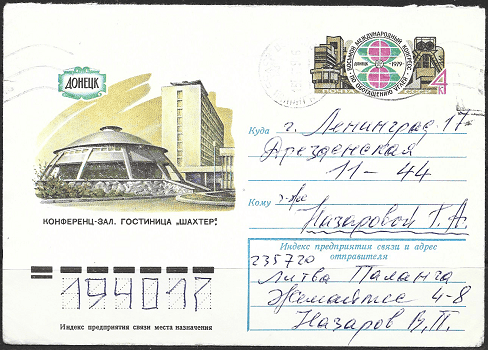 ДОНЕЦК
КОНФЕРЕНЦ-ЗАЛ. ГОСТИНИЦА „ШАХТЕР".
ВОСЬМОЙ МЕЖДУНАРОДНЫЙ КОНГРЕСС
ПО ОБОГАЩЕНИЮ УГЛЕЙ
ДОНЕЦК 1979
4
Куда г. Ленинград, 17
Дрезденская
11 - 44
Кому г-же
Назаровой Т. А.
Индекс предприятия связи и адрес
отправителя
235720
Литва Паланга
Жемайтес 4-8
Назаров В. П.
194017
Индекс предприятия связи места назначения